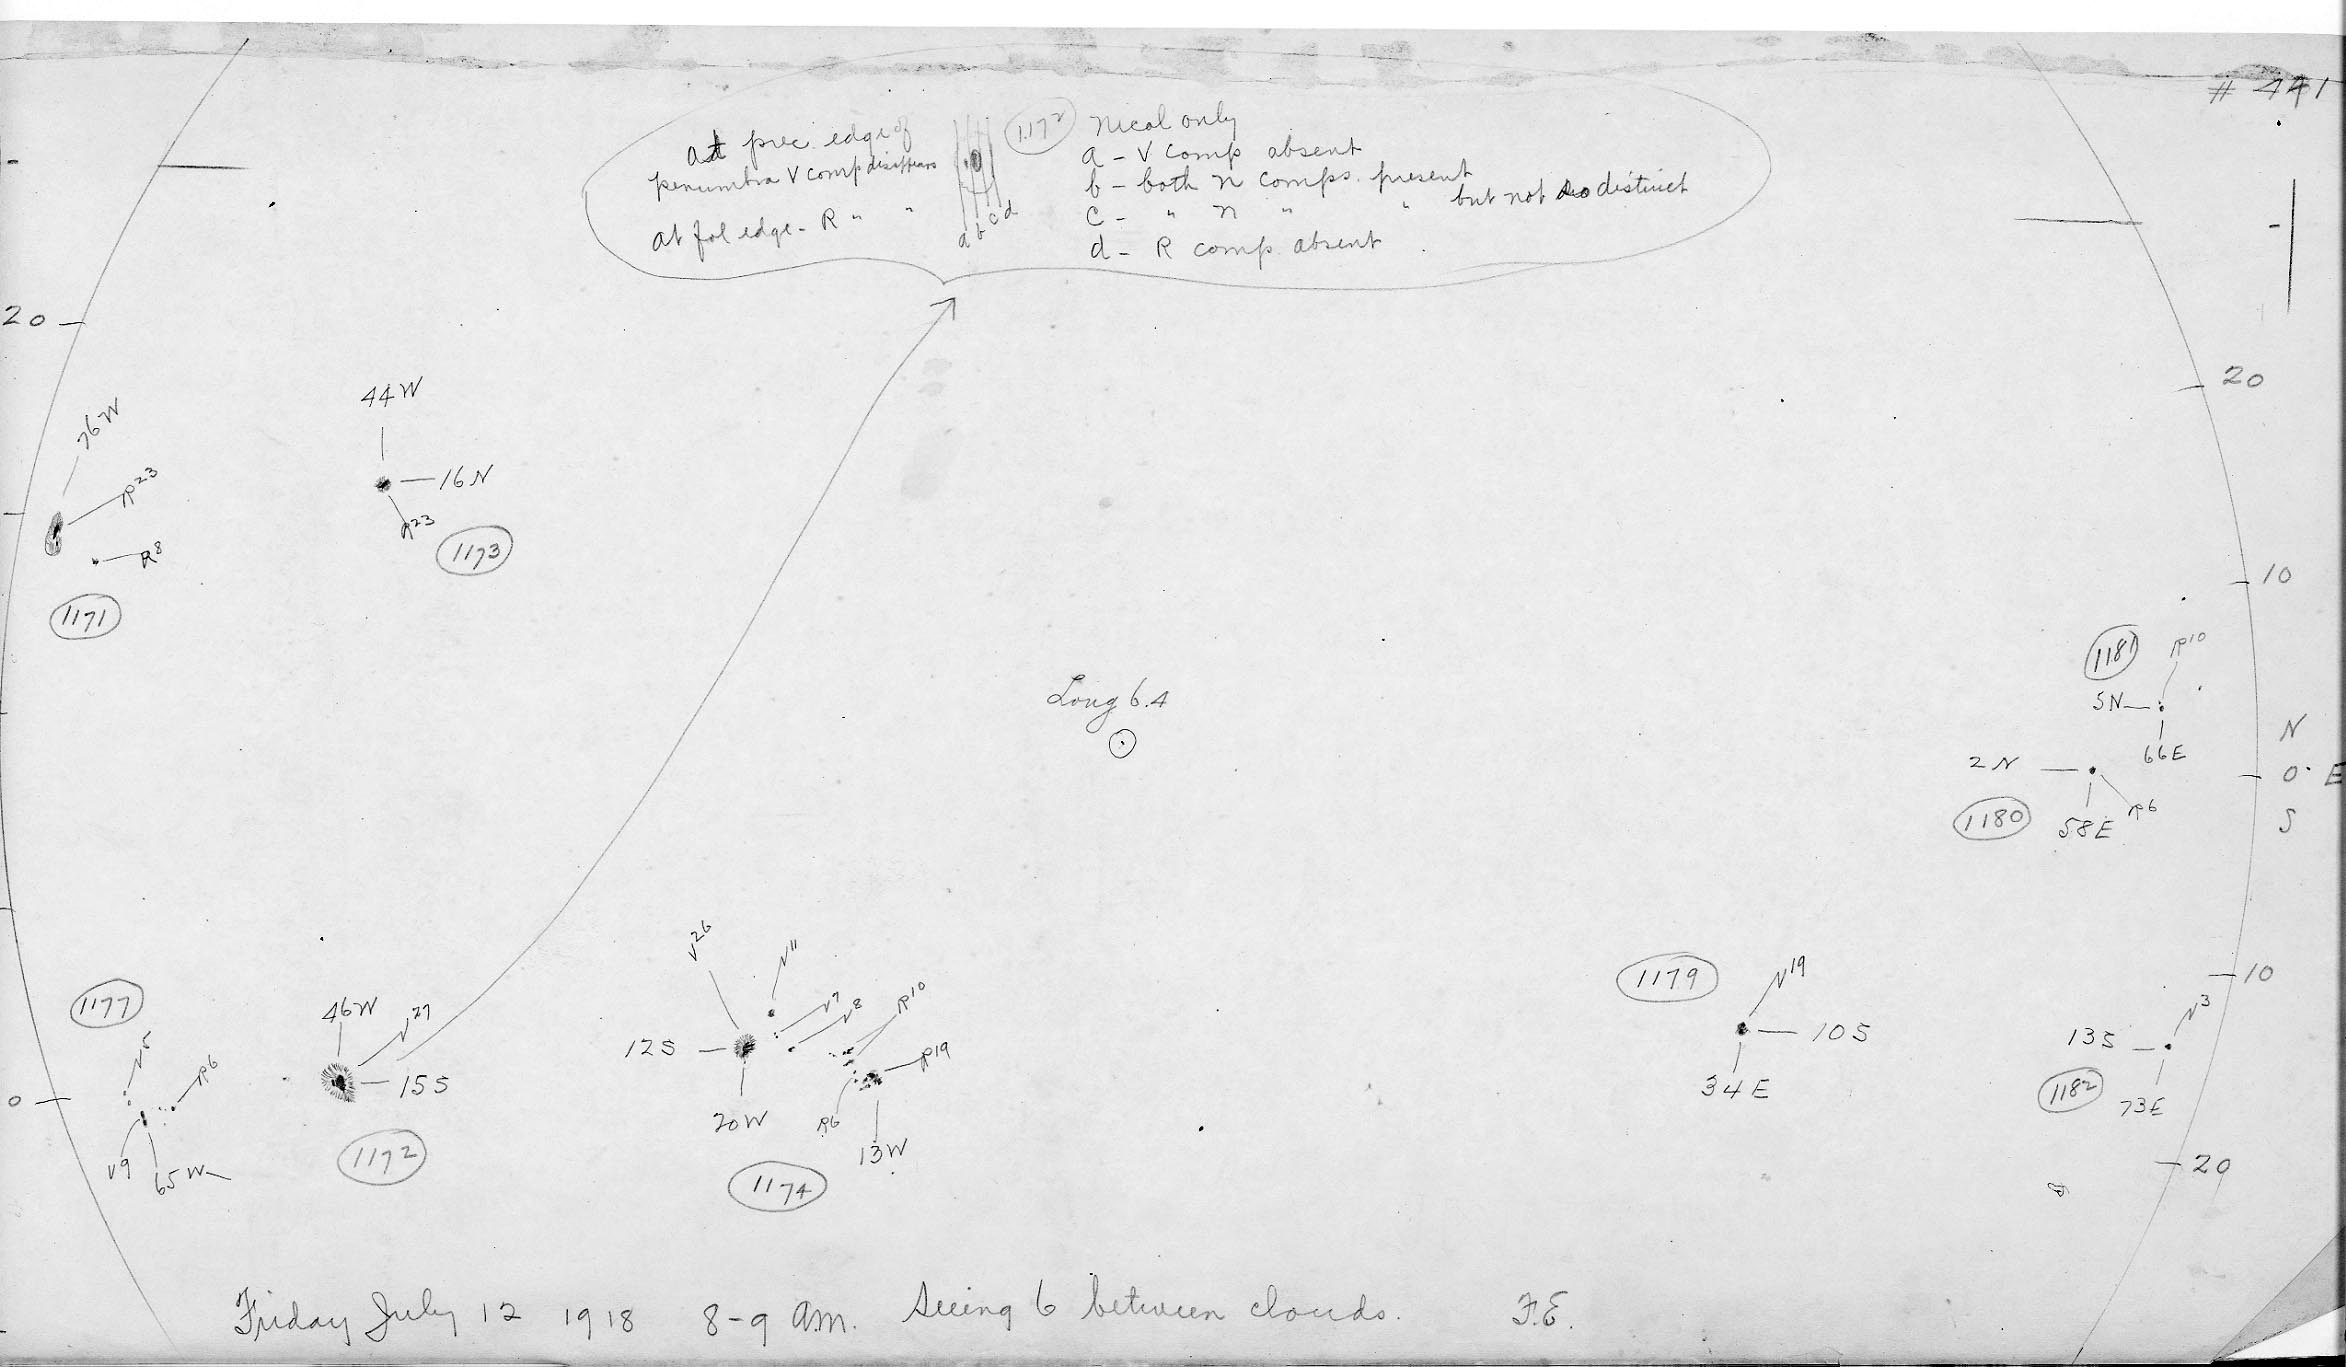 # 441
at prec. edge of
penumbra V comp disappears
at fol edge - R " "
a b c d
1172
Nicol only
a - V comp absent
b - both n comps. present
c - " n " " but not so distinct
d - R comp. absent
20
76W
R23
R8
1171
44W
16N
R23
1173
20
10
1181
R10
5N
66E
N
0° E
S
2N
R6
1180
58E
Long 6.4
1177
V5
R6
V9
65W
0
46W
V27
15S
1172
V26
V11
V7
V8
R10
12S
R19
20W
R6
13W
1174
1179
V19
10S
34E
10
V3
13S
1182
73E
20
Friday July 12 1918 8-9 am. Seeing 6 between clouds. F.E.